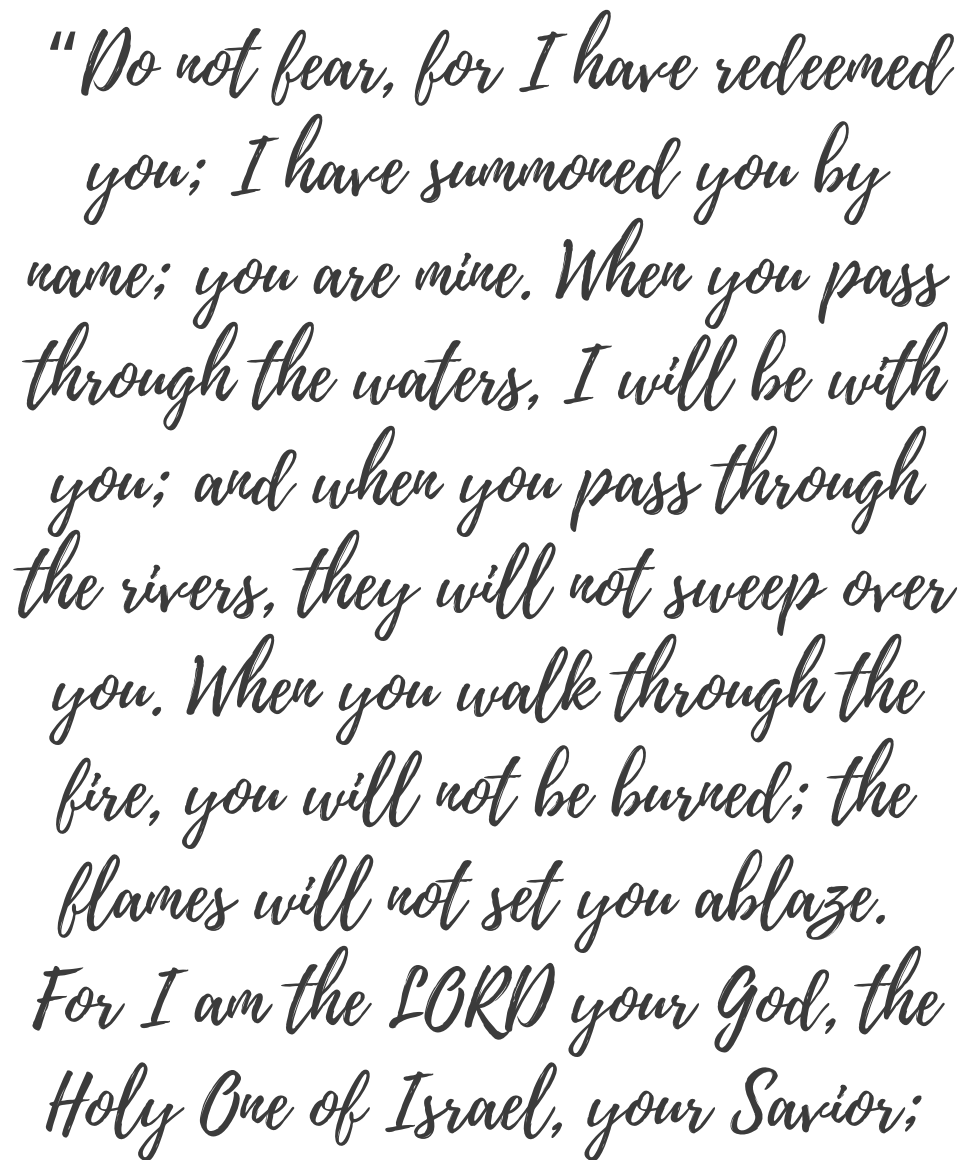 “Do not fear, for I have redeemed
you; I have summoned you by
name; you are mine. When you pass
through the waters, I will be with
you; and when you pass through
the rivers, they will not sweep over
you. When you walk through the
fire, you will not be burned; the
flames will not set you ablaze.
For I am the LORD your God, the
Holy One of Israel, your Savior;